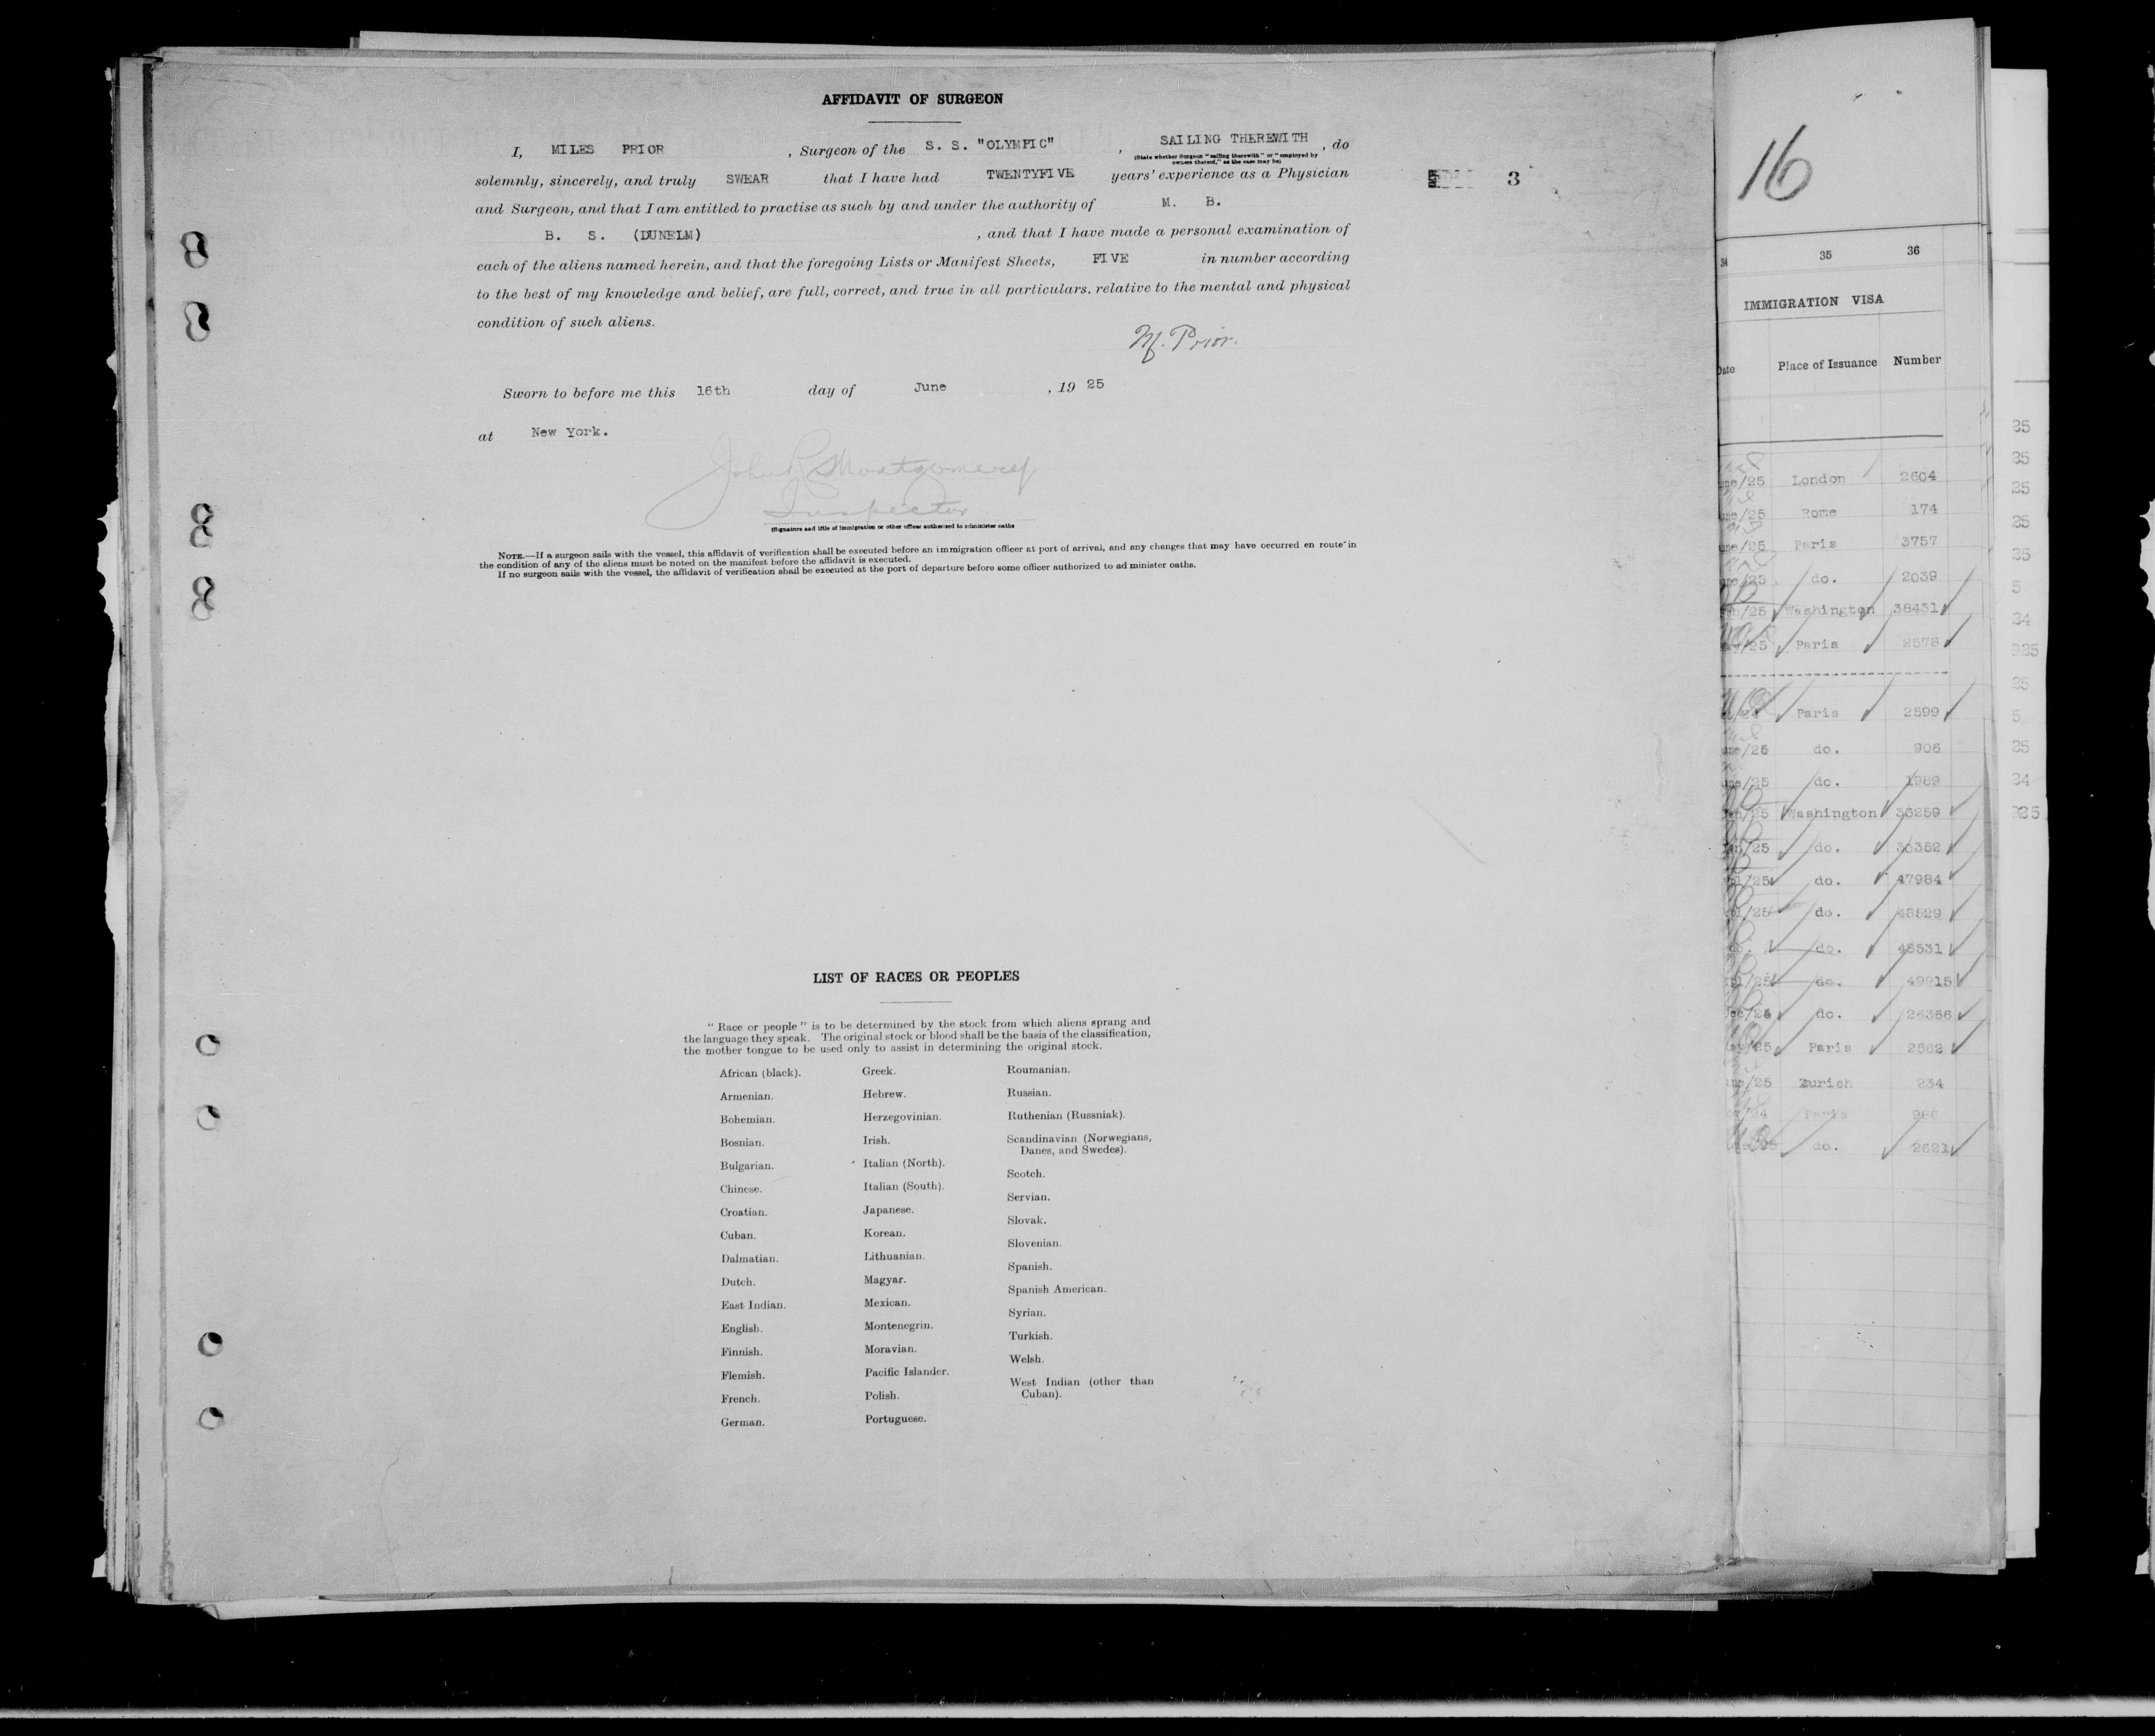 AFFIDAVIT OF SURGEON
I, MILES PRIOR , Surgeon of the S. S. "OLYMPIC" , SAILING THEREWITH , do
(State whether Surgeon "sailing therewith" or "employed by
owners thereof," as the case may be)
solemnly, sincerely, and truly SWEAR that I have had TWENTYFIVE years' experience as a Physician
and Surgeon, and that I am entitled to practise as such by and under the authority of M. B.
B. S. (DUNELM) , and that I have made a personal examination of
each of the aliens named herein, and that the foregoing Lists or Manifest Sheets, FIVE in number according
to the best of my knowledge and belief, are full, correct, and true in all particulars. relative to the mental and physical
condition of such aliens.
M. Prior.
Sworn to before me this 16th day of June , 19 25
at New York.
John R Montgomery
Inspector
(Signature and title of immigration or other officer authorized to administer oaths
NOTE.—If a surgeon sails with the vessel, this affidavit of verification shall be executed before an immigration officer at port of arrival, and any changes that may have occurred en route in
the condition of any of the aliens must be noted on the manifest before the affidavit is executed.
If no surgeon sails with the vessel, the affidavit of verification shall be executed at the port of departure before some officer authorized to ad minister oaths.
3
LIST OF RACES OR PEOPLES
"Race or people" is to be determined by the stock from which aliens sprang and
the language they speak. The original stock or blood shall be the basis of the classification,
the mother tongue to be used only to assist in determining the original stock.
African (black).
Armenian.
Bohemian.
Bosnian.
Bulgarian.
Chinese.
Croatian.
Cuban.
Dalmatian.
Dutch.
East Indian.
English.
Finnish.
Flemish.
French.
German.
Greek.
Hebrew.
Herzegovinian.
Irish.
Italian (North).
Italian (South).
Japanese.
Korean.
Lithuanian.
Magyar.
Mexican.
Montenegrin.
Moravian.
Pacific Islander.
Polish.
Portuguese.
Roumanian.
Russian.
Ruthenian (Russniak).
Scandinavian (Norwegians,
Danes, and Swedes).
Scotch.
Servian.
Slovak.
Slovenian.
Spanish.
Spanish American.
Syrian.
Turkish.
Welsh.
West Indian (other than
Cuban).
16
34 35 36
IMMIGRATION VISA
Date Place of Issuance Number
une/25 London 2604
une/25 Rome 174
une/25 Paris 3757
ne/25 do. 2039
/25 Washington 38431
/25 Paris 2578
Paris 2599
une/25 do. 906
une/25 do. 1989
/25 Washington 33259
/25 do. 30352
/25 do. 47984
/25 do. 48529
do. 48531
/25 do. 49915
do. 26366
/25 Paris 2562
une/25 Zurich 234
/24 Paris 986
do. 2621